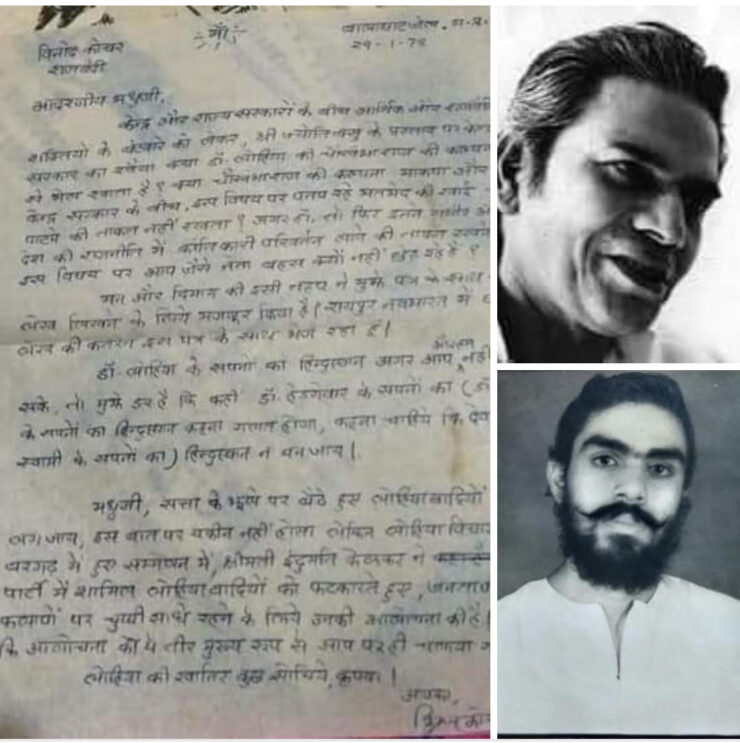 माँ
बालाघाट जेल. म.प्र.
29-1-78
विनोद कोचर
आदरणीय मधुजी,
केन्द्र और राज्य सरकारों के बीच आर्थिक और
शक्तियों के बंटवारे को लेकर, श्री ज्योति बसु के प्रस्ताव पर केन्द्र
सरकार का रवैया क्या डॉ. लोहिया की चौखंभा राज की कल्पना
से मेल खाता है ? क्या चौखंभा राज की कल्पना माकपा और
केन्द्र सरकार के बीच, इस विषय पर पनप रहे मतभेद की खाई
पाटने की ताकत नहीं रखता ? अगर हां, तो फिर इतने गंभीर
देश की राजनीति में क्रांतिकारी परिवर्तन लाने की ताकत रखने
इस विषय पर आप जैसे नेता बहस क्यों नहीं छेड़ रहे हैं ?
मन और दिमाग की इसी तड़प ने मुझे पत्र के साथ
लेख लिखने के लिये मजबूर किया है। रायपुर नवभारत में
लेख की कतरन इस पत्र के साथ भेज रहा हूं।
डॉ. लोहिया के सपनों का हिन्दुस्थान अगर आप नहीं
सके, तो मुझे डर है कि कहीं डॉ. हेडगेवार के सपनों का (डॉ
के सपनों का हिन्दुस्थान कहना गलत होगा, कहना चाहिये कि
स्वामी के सपनों का) हिन्दुस्थान न बन जाय।
मधुजी, सत्ता के झूले पर बैठे हुए लोहियावादियों
लग जाय, इस बात पर यकीन नहीं होता लेकिन लोहिया विचार
बरगढ़ में हुए सम्मेलन में, श्रीमती इंदुमति केलकर ने
पार्टी में शामिल लोहियावादियों को फटकारते हुए, जनता
पर चुप्पी साधे रहने के लिये उनकी आलोचना की है।
कि आलोचना का ये तीर मुख्य रूप से आप पर ही चलाया
लोहिया की खातिर कुछ सोचिये, कृपया।
आपका,